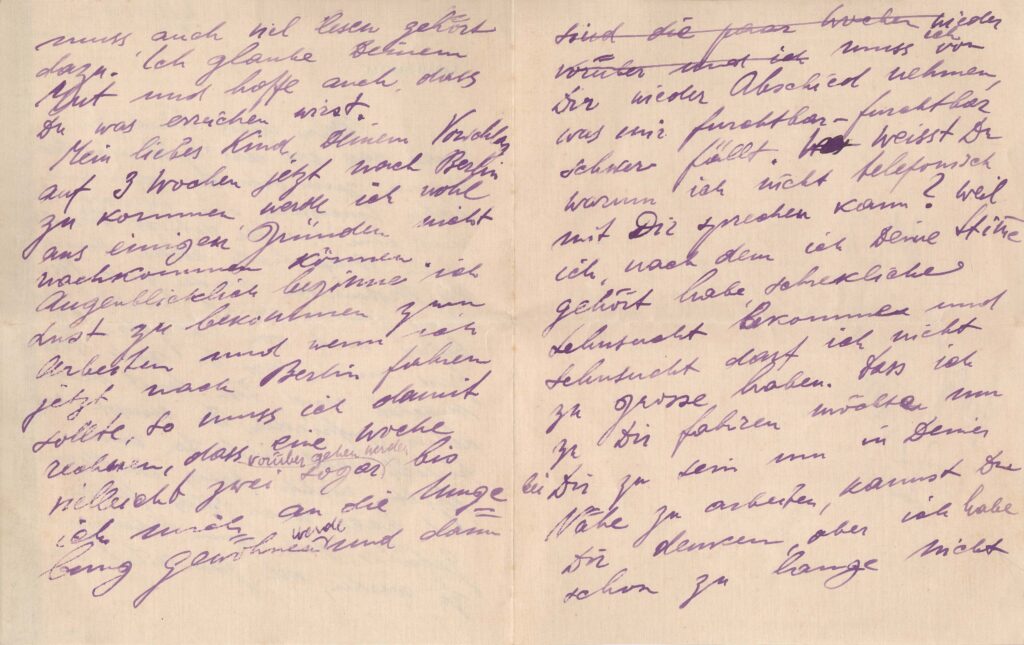 muss, auch viel lesen gehört
dazu. Ich glaube Deinem
Mut und hoffe auch, dass
Du was erreichen wirst.
Mein liebes Kind, Deinem Vorschlag
auf 3 Wochen jetzt nach Berlin
zu kommen, werde ich wohl
aus einigen Gründen nicht
nachkommen können.
Augenblicklich beginne ich
Lust zu bekommen zum
Arbeiten und wenn ich
jetzt nach Berlin fahren
sollte, so muss ich damit
rechnen, dass eine Woche
vorüber gehen werden
vielleicht zwei sogar bis
ich mich an die Umge
werde
bung gewöhnen und dann
sind die paar Wochen wieder
vorüber und ich muss ich von
Dir wieder Abschied nehmen,
was mir furchtbar-furchtbar
schwer fällt. weisst Du
warum ich nicht telefonisch
mit Dir sprechen kann? Weil
ich, nach dem ich Deine Stime
gehört habe, schrekliche
Sehnsucht bekommen und
Sehnsucht darf ich nicht
zu grosse haben. Dass ich
zu Dir fahren möchte um
bei Dir zu sein um in Deiner
Nähe zu arbeiten, kannst Du
Dir denken, aber ich habe
schon zu lange nicht